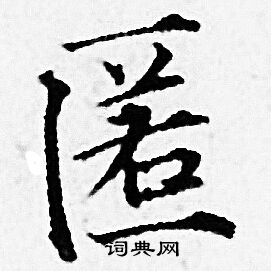 匿
词典网